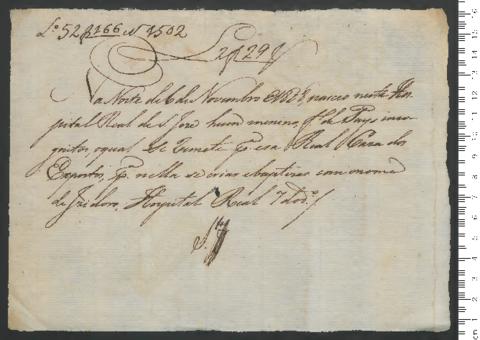 Lº 52 f 166 Nº 1502
L 2 f 29
Na Noite de 6 de Novembro nasceo neste Hos
pital Real de S. José hum menino fº de Pays inco
gnitos, o qual se remete pª essa Real Caza dos
Expostos, pª nella se criar e baptizar com o nome
de Izidoro. Hospital Real 7 do dº